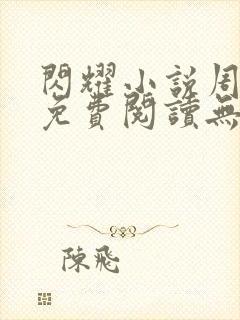 閃耀小說周
免費閱讀無
陳飛